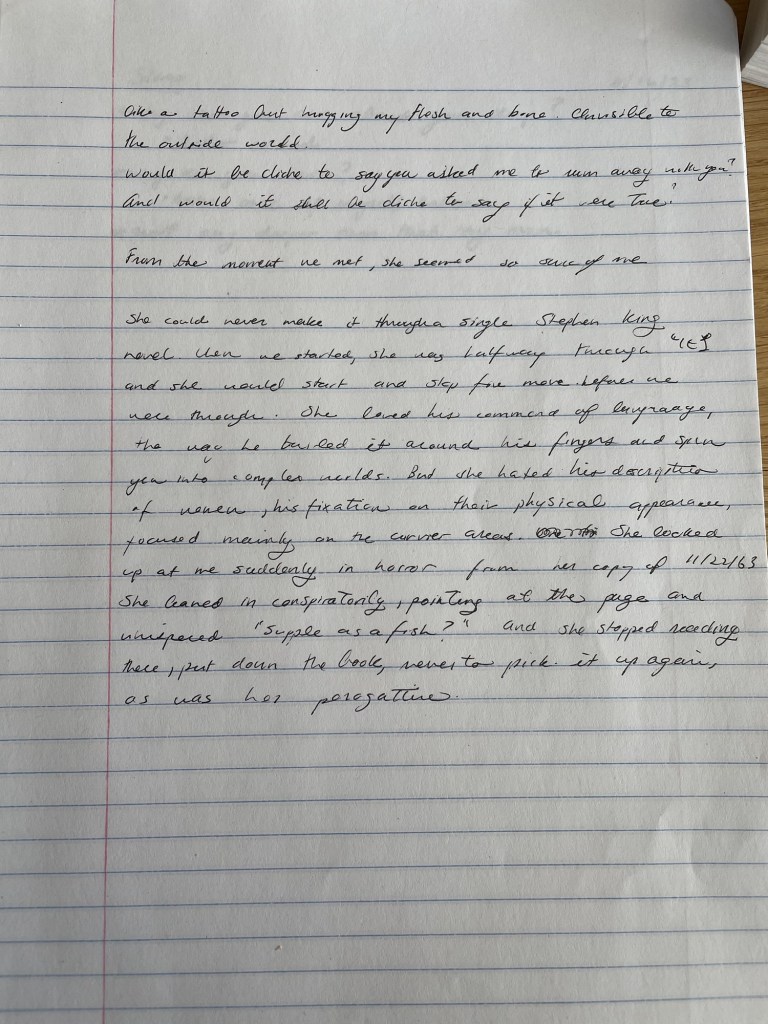 like a tattoo but hugging my flesh and bone. Invisible to
the outside world.
Would it be cliche to say you asked me to run away with you?
And would it still be cliche to say if it were true?
From the moment we met, she seemed so sure of me
She could never make it through a single Stephen King
novel. When we started, she was halfway through "IT"
and she would start and stop five more before we
were through. She loved his command of language,
the way he coiled it around his fingers and spun
you into complex worlds. But she hated his description
of women, his fixation on their physical appearance,
focused mainly on the curvier areas. She looked
up at me suddenly in horror from her copy of 11/22/63
She leaned in conspiratorily, pointing at the page and
whispered "Supple as a fish?" and she stopped reading
there, put down the book, never to pick it up again,
as was her peragative.